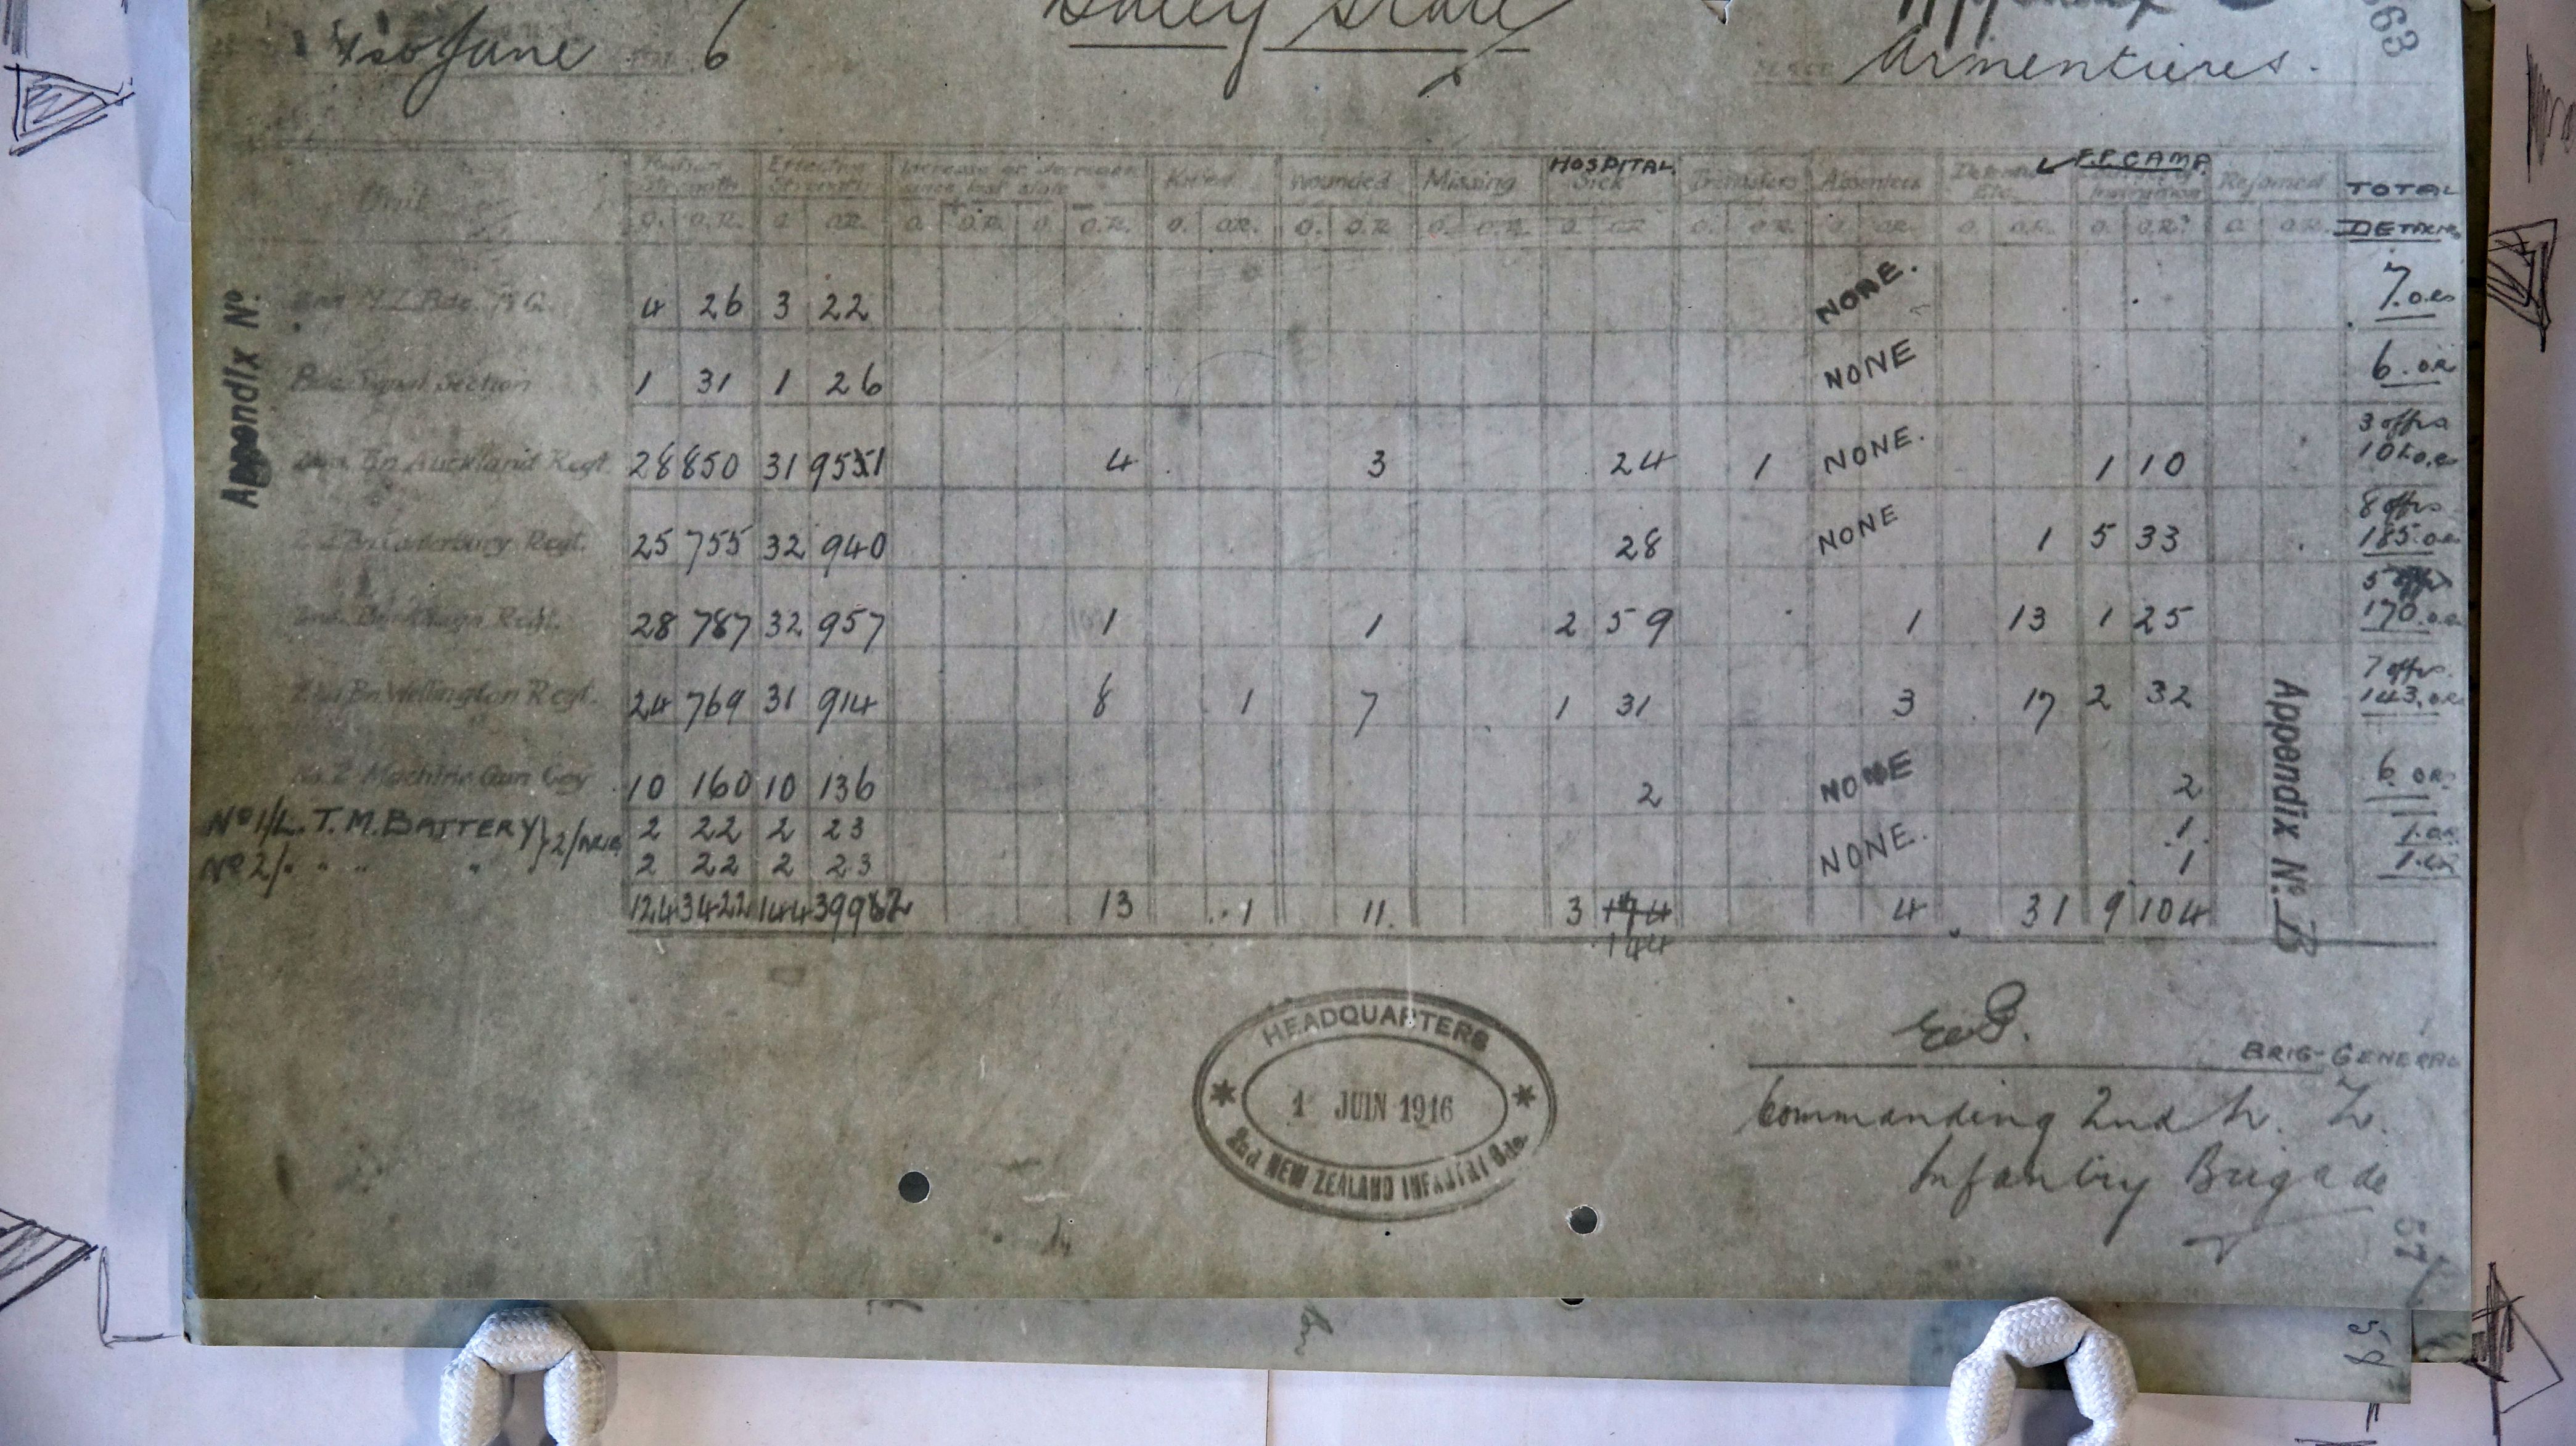 Daily State
1st June 6
Armentieres.
563
Unit Trench Strength Effective Strength Increase or decrease since last state Killed Wounded Missing HOSPITAL. Sick Transfers Absentees F.P. CAMP. Rejoined TOTAL
O. O.R. O. O.R. O. O.R. O. O.R. O. O.R. O. O.R. O. O.R. O. O.R. O. O.R. O. O.R. O. O.R. O. O.R. O. O.R. DETAILS
Appendix No.
2nd N.Z. Bde. H.Q. 4 26 3 22 NONE. 7.ors
Bde. Signal Section 1 31 1 26 NONE 6.OR
2nd. Bn. Auckland Regt. 28 850 31 951 4 3 24 1 NONE. 1 10 3 offrs
2nd Bn Canterbury Regt. 25 755 32 940 28 NONE 1 5 33 8 offrs 185.ors
2nd. Bn. Otago Regt. 28 787 32 957 1 1 2 59 1 13 1 25 170.ors
2nd Bn Wellington Regt. 24 769 31 914 8 1 7 1 31 3 17 2 32 7 offrs. 143.ors
No. 2 Machine Gun Coy 10 160 10 136 2 NONE 2 6 ORS
No 1/L. T. M. BATTERY 2 22 2 23 NONE. 1. 1.OR
No 2/. " " " 2 22 2 23 1
124 3422 144 3992 13 1 11. 3 174 4 31 9 104
144
Appendix No. B
HEADQUARTERS
1 JUIN 1916
2nd NEW ZEALAND INFANTRY Bde.
BRIG-GENERAL
Commanding 2nd N. Z.
Infantry Brigade
57
58